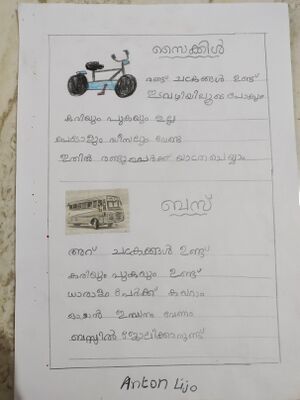 സൈക്കിൾ
രണ്ട് ചക്രങ്ങൾ ഉണ്ട്
ഇടവഴിയിലൂടെ പോകും
കരിയും പുകയും ഇല്ല
പെട്രോളും ഡീസലും വേണ്ട
ഇതിൽ രണ്ടുപേർക്ക് യാത്രചെയ്യാം
ബസ്
ആറ് ചക്രങ്ങൾ ഉണ്ട്
കരിയും പുകയും ഉണ്ട്
ധാരാളം പേർക്ക് കയറാം
ഓടാൻ ഇന്ധനം വേണം
ബസ്സിൽ ജോലിക്കാരുണ്ട്
Anton Lijo